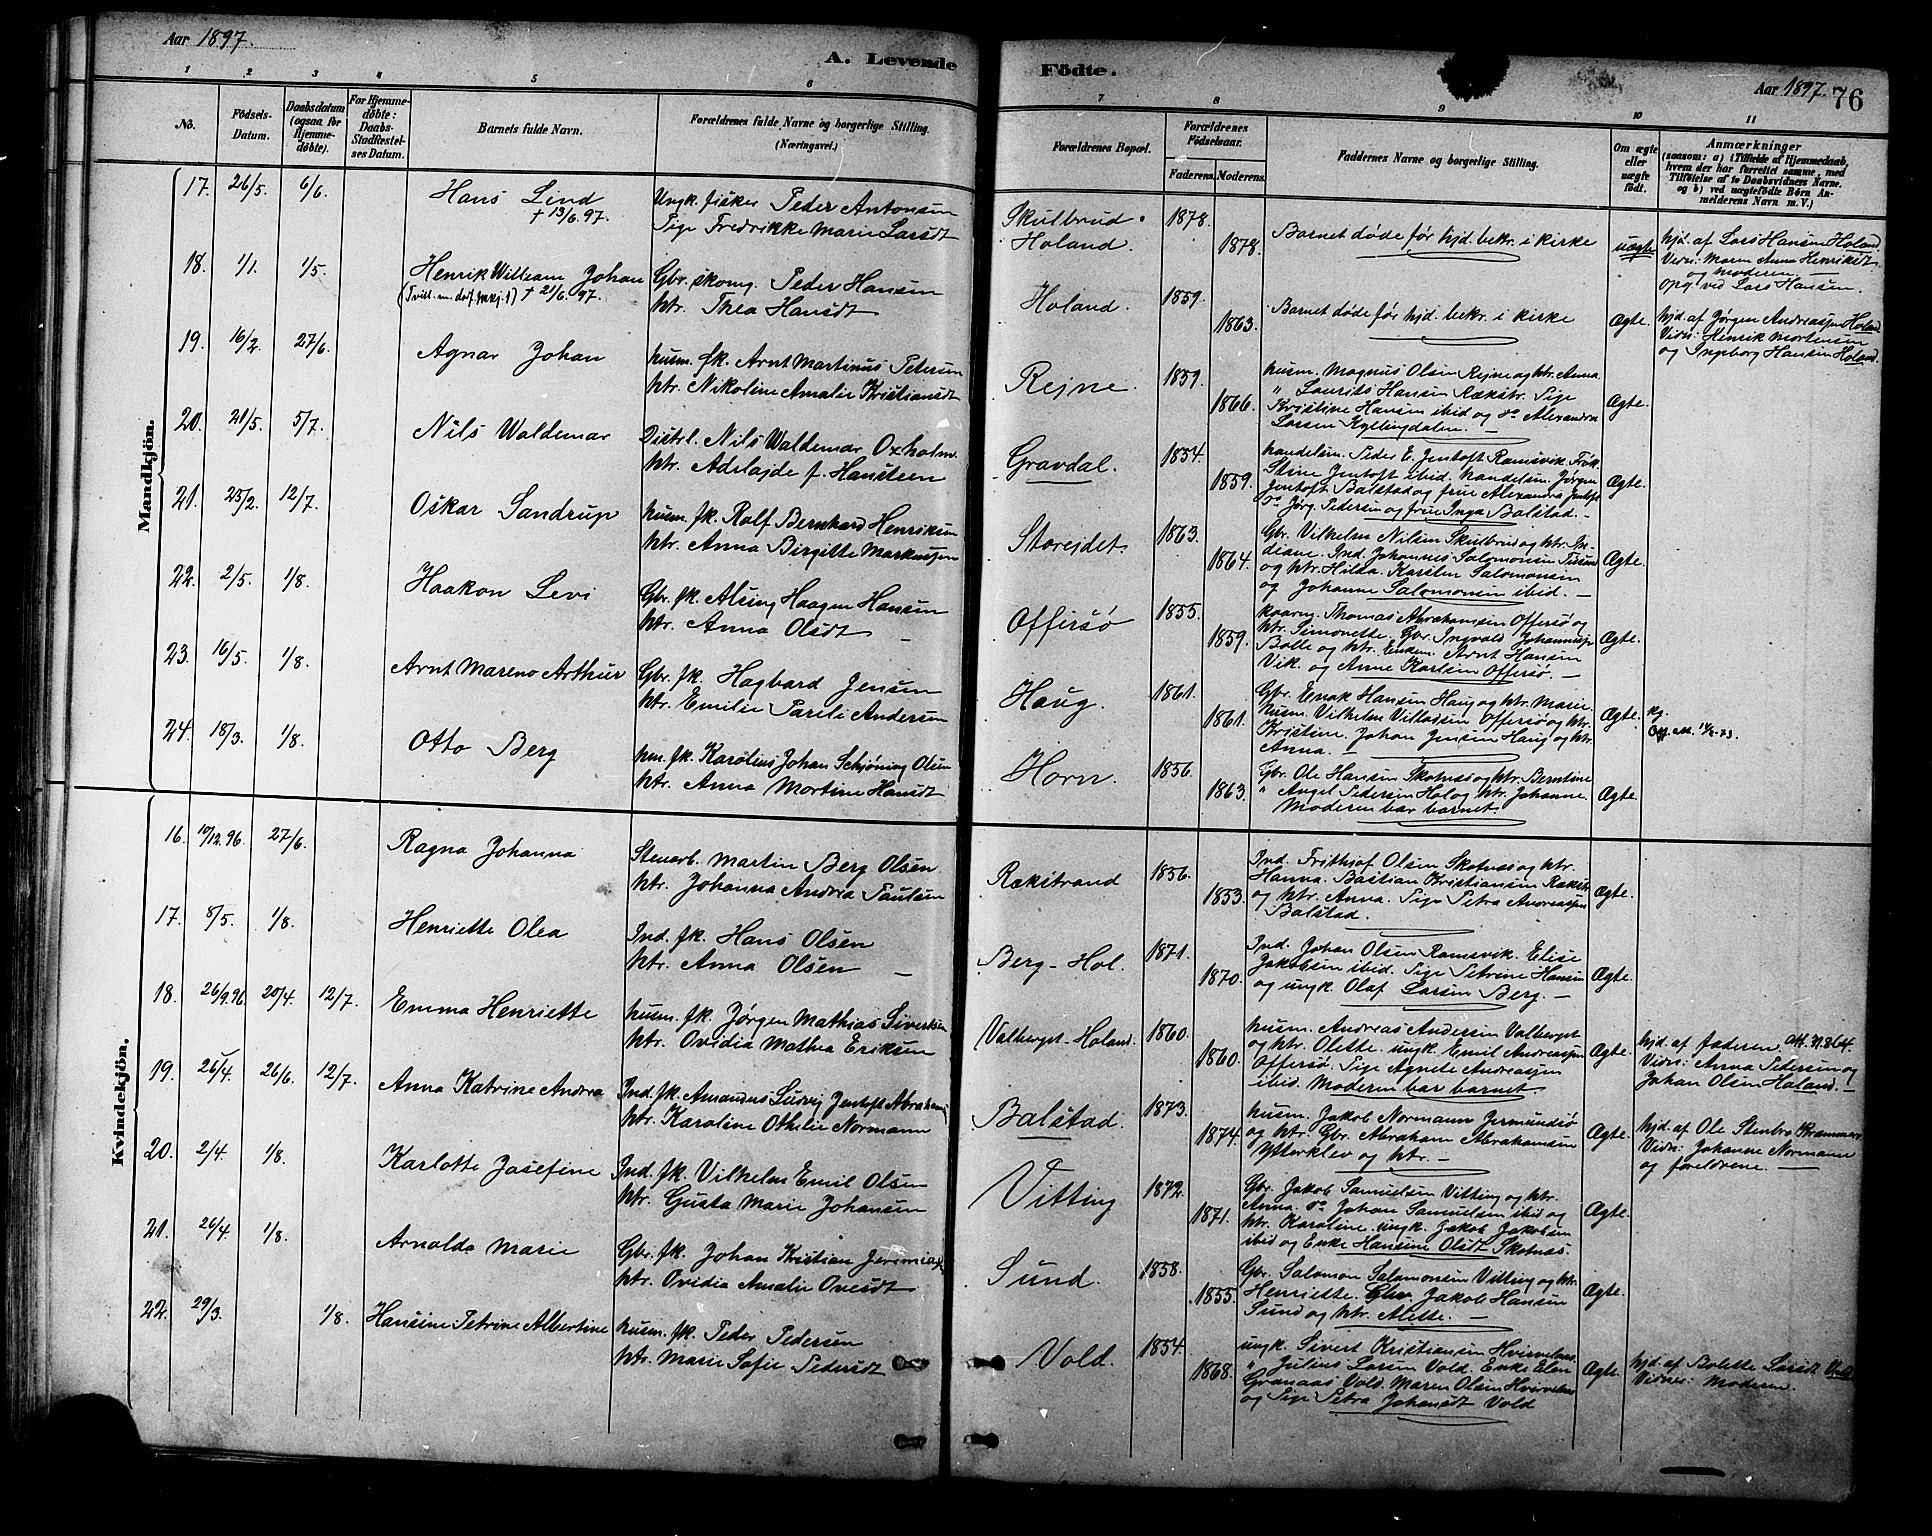 Aar 1897.
A. Levende
Födte.
Aar 1897.
76
1 2 3 4 5 6
7 8 9 10 11
No.
Födsels-
Datum.
Daabsdatum
(ogsaa for
Hjemme-
døbte).
For Hjemme-
døbte:
Daabs-
Stadfestel-
ses Datum.
Barnets fulde Navn.
Forældrenes fulde Navne og borgerlige Stilling.
(Næringsvei.)
Forældrenes Bopæl.
Forældrenes
Födselsaar.
Faderens. Moderens.
Faddernes Navne og borgerlige Stilling.
Om ægte
eller
uægte
födt.
Anmærkninger
(saasom: a) i Tilfælde af Hjemmedaab,
hvem der har forrettet samme, med
Tilföielse af to Daabsvidners Navne.
og b) ved uægtefödte Börn An-
melderens Navn m. V.)
Mandkjön.
17. 26/5. 6/6.
Hans Lind
+ 13/6 97.
Ungk. fisker Peder Antonsen
Pige Fredrikke Marie Larsdt
Skulbrud
Holand.
1878.
1878.
Barnet døde før hjd. bekr. i kirke
uægte
hjd. af Lars Hansen Holand
Vidn: Maren Anna Henriksdt
og moderen. —
opg. ved Lars Hansen.
18. 1/1. 1/5.
Henrik William Johan
+ 21/6 97.
Gbr. skomg. Peder Hansen
Htr. Thea Hansdt
Holand.
1859.
1863.
Barnet døde før hjd. bekr. i kirke
Ægte.
hjd. af Jørgen Andreassen Holand
Vidn: Henrik Mortensen
og Ingeborg Hansen Holand.
19. 16/2. 27/6.
Agnar Johan
Husm. fk. Arnt Martinus Petersen
Htr. Nikoline Amalie Kristiansdt
Rejne.
1859.
1866.
Husm. Magnus Olsen Rejne og htr. Anna.
" Laurits Hansen Rækstr. Pige
Kristine Hansen ibid og do Alexandra
Larsen Kyllingdalen. —
Ægte.
20. 21/5. 5/7.
Nils Waldemar
Distrl. Nils Waldemar Oxholm
Htr. Adelajde f. Hansteen
Gravdal.
1854.
1859.
Handelsm. Peder E. Jentoft Ramsvik. Frøk.
Stine Jentoft ibid. Handelsm. Jørgen
Jentoft Balstad og frue Alexandra Jentoft
do Jørg. Pedersen og frue Inga Balstad. —
Ægte.
21. 25/2. 12/7.
Oskar Sandrup
Husm. fk. Rolf Bernhard Henriksen
Htr. Anna Birgitte Markussen
Storejdet
1863.
1864.
Gbr. Vilhelm Nilsen Skulbrud og htr. In-
diane. Ind. Johannes Salomonsen
og htr. Hilda. Karsten Salomonsen
og Johanna Salomonsen ibid. —
Ægte.
22. 2/5. 1/8.
Haakon Levi
Gbr. fk. Alsing Haagen Hansen
Htr. Anna Olsdt —
Offersø
1855.
1859.
Kaarm. Thomas Abrahamsen Offersø og
htr. Simonette. Gbr. Ingvald Johannessen
Bolle og htr. Enkem. Arnt Hansen
Vik. og Anne Karlsen Offersø. —
Ægte.
23. 16/5. 1/8.
Arnt Mareno Arthur
Gbr. fk. Hagbard Jensen
Htr. Emilie Pareli Andersen
Haug.
1861.
1861.
Gbr. Enok Hansen Haug og htr. Marie.
Husm. Vilhelm Villadsen Offersø og htr.
Kristine. Johan Jensen Haug og htr.
Anna. —
Ægte.
24. 18/3. 1/8.
Otto Berg
Hm. fk. Karolius Johan Schjøning Olsen
Htr. Anna Mortine Hansdt
Horn.
1856.
1863.
Gbr. Ole Hansen Skotnes og htr. Berntine
" Angel Pedersen Hol og htr. Johanne.
Moderen bar barnet.
Ægte.
Kvindekjön.
16. 10/12 96. 27/6.
Ragna Johanna
Stenarb. Martin Berg Olsen
Htr. Johanna Andrea Paulsen
Rækstrand
1856.
1853.
Ind. Frithjof Olsen Skotnes og htr.
Hanna. Bastian Kristiansen Rækstr.
og htr. Anna. Pige Petra Andreassen
Balstad.
Ægte.
17. 8/5. 1/8.
Henriette Olea
Ind. fk. Hans Olsen
Htr. Anna Olsen —
Berg - Hol.
1871.
1870.
Ind. Johan Olsen Ramsvik. Elise
Jakobsen ibid. Pige Petrine Hansen
og ungk. Olaf Larsen Berg. —
Ægte.
18. 26/9 96. 20/4. 12/7.
Emma Henriette
Husm. fk. Jørgen Mathias Sivertsen
Htr. Ovidia Mathea Eriksen
Valberget - Holand.
1860.
1860.
Husm. Andreas Andersen Valberget
og htr. Olette. ungk. Emil Andreassen
Offersø. Pige Agnete Andreassen
ibid. Moderen bar barnet.
Ægte.
hjd. af faderen.
Vidn: Anna Pedersen og
Johan Olsen Holand. —
19. 26/4. 26/6. 12/7.
Anna Katrine Andrea
Ind. fk. Amandus Ludvig Jentoft Abrahams.
Htr. Karoline Othelie Normann
Balstad.
1873.
1874.
Husm. Jakob Normann Jermundsø
og htr. Gbr. Abraham Abrahamsen
Ytterklev og htr. —
Ægte.
hjd. af Ole Stenbro
Vidn: Johanne Normann
og foreldrene. —
20. 2/4. 1/8.
Karlotte Josefine
Ind. fk. Vilhelm Emil Olsen
Htr. Gusta Marie Johansen
Vitting
1872.
1871.
Gbr. Jakob Samuelsen Vitting og htr.
Anna. do Johan Samuelsen ibid og
htr. Karoline. ungk. Jakob Jakobsen
ibid og Enke Hansine Olsdt Skotnes.
Ægte.
21. 26/4. 1/8.
Arnolda Marie
Gbr. fk. Johan Kristian Jeremias.
Htr. Ovidia Amalie Ovesdt
Sund.
1858.
1855.
Gbr. Salomon Salomonsen Vitting og htr.
Henriette. Gbr. Jakob Hansen
Sund og htr. Alette. —
Ægte.
22. 29/3. 1/8.
Hansine Petrine Albertine
Husm. fk. Peder Pedersen
Htr. Marie Sofie Pedersdt
Vold.
1854.
1868.
ungk. Sivert Kristiansen Hvirvelnes.
" Julius Larsen Vold. Enke Elen
Granaas Vold. Maren Olsen Hvirvelnes
og Pige Petra Johansdt Vold
Ægte.
hjd. af Bolette Larsdt Vold
Vidnes: Moderen.